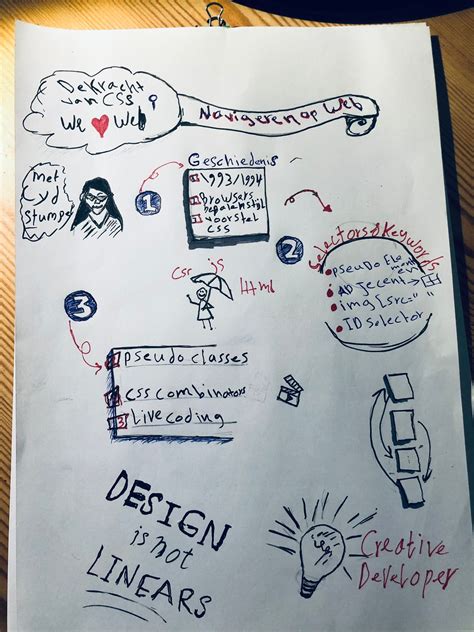 De Kracht
van CSS
We Web
Navigeren op Web
Met
Cyd
Stumpel
1
Geschiedenis
1 1993/1994
2 browsers
bepalen stijl
3 voorstel
css
2
Selectors & Keywords
pseudo Element
ADJecent →
img[src=" "
ID Selector
css js
Html
3
1 pseudo classes
2 css combinators
3 Live coding
DESIGN
is not
LINEARS
Creative
Developer